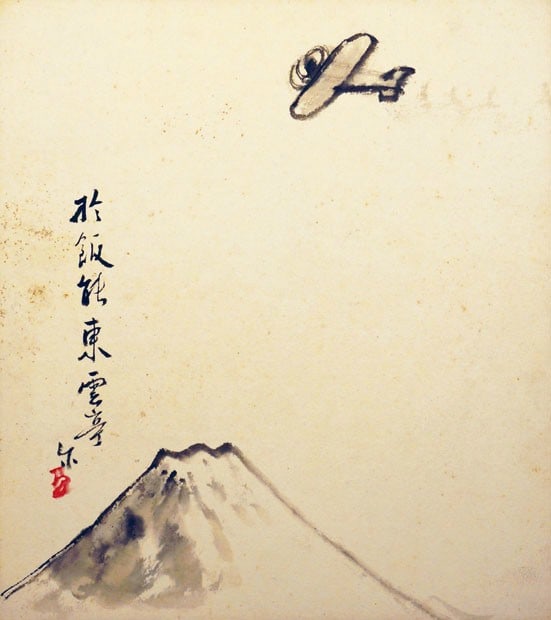 於飯能東雲亭